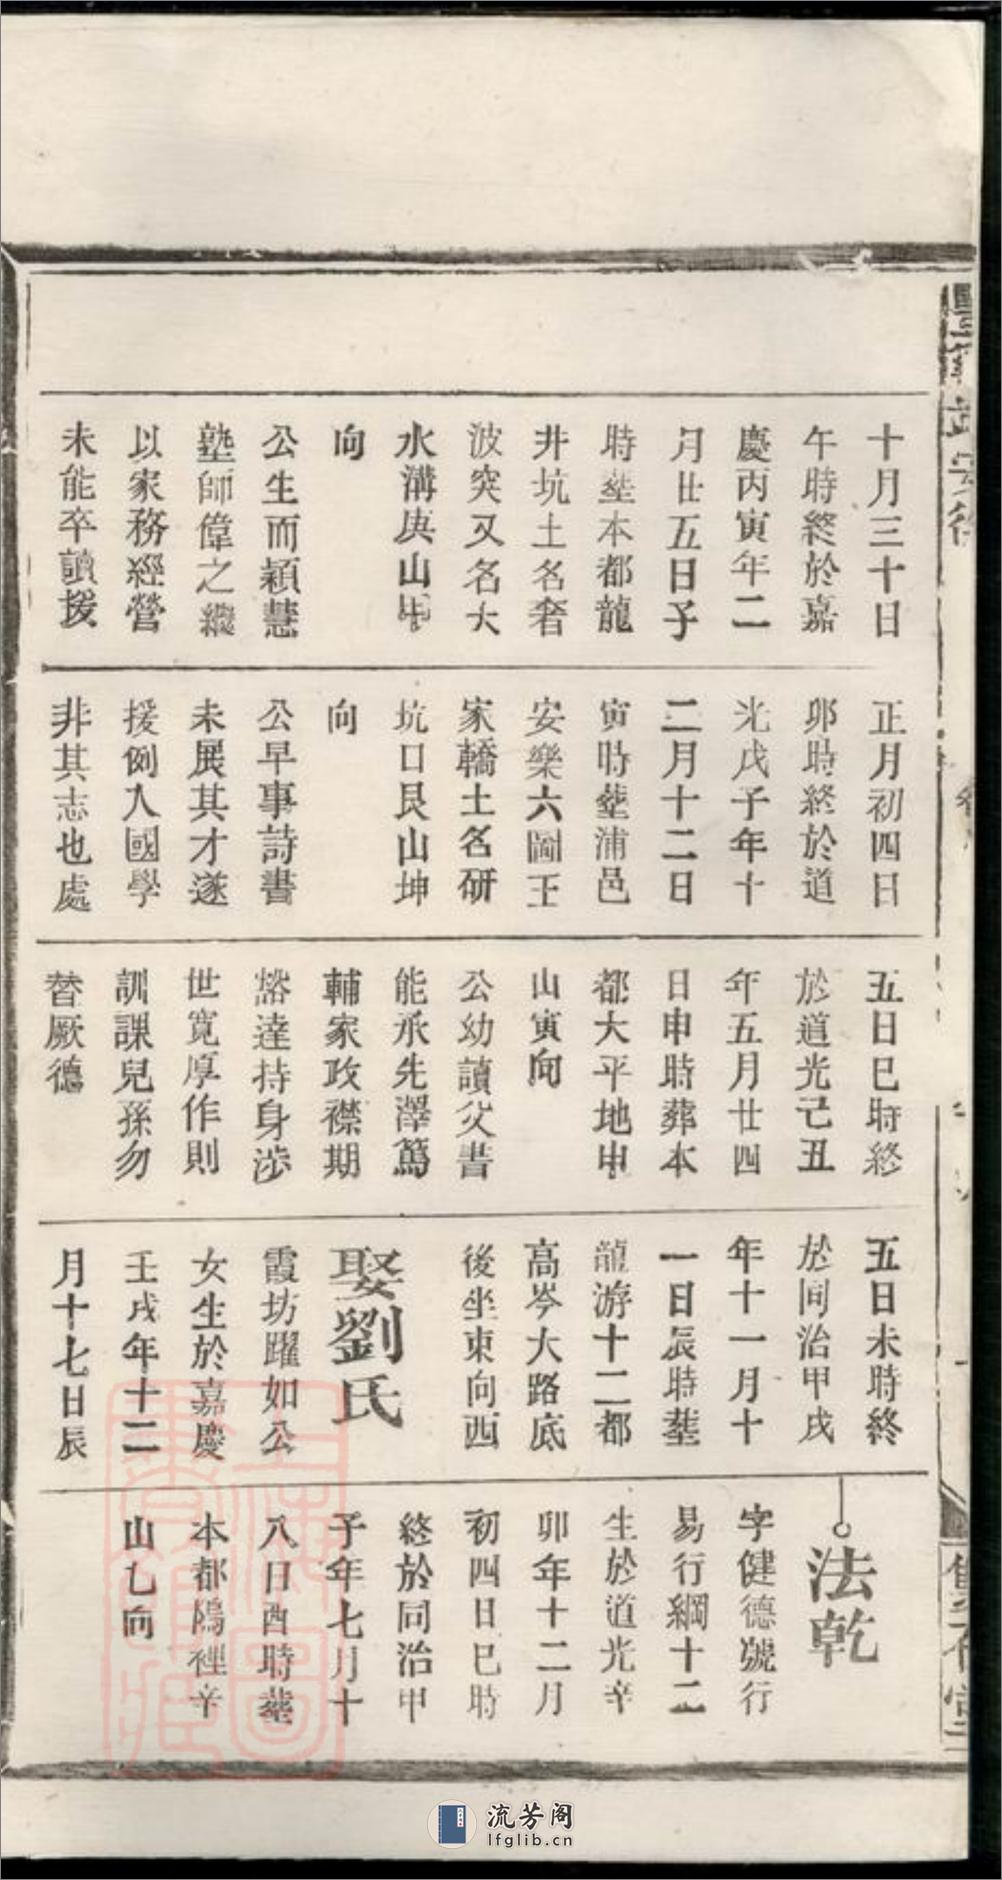 十月三十日
午時終於嘉
慶丙寅年二
月廿五日子
時塟本都龍
井坑土名奢
波突又名大
水溝庚山甲
向
公生而穎慧
塾師偉之纔
以家務經營
未能卒讀援
正月初四日
卯時終於道
光戊子年十
二月十二日
寅時塟浦邑
安樂六圖王
家轎土名研
坑口艮山坤
向
公早事詩書
未展其才遂
援例入國學
非其志也處
五日巳時終
於道光己丑
年五月廿四
日申時葬本
都大平地申
山寅向
公幼讀父書
能承先澤篤
輔家政襟期
豁達持身涉
世寬厚作則
訓課兒孫勿
替厥德
五日未時終
於同治甲戌
年十一月十
一日辰時塟
龍游十二都
高岑大路底
後坐東向西
娶劉氏
霞坊躍如公
女生於嘉慶
壬戌年十二
月十七日辰
法乾
字健德號行
易行綱十二
生於道光辛
卯年十二月
初四日巳時
終於同治甲
子年七月十
八日酉時塟
本都隖裡辛
山乙向
流芳阁
lfglib.cn